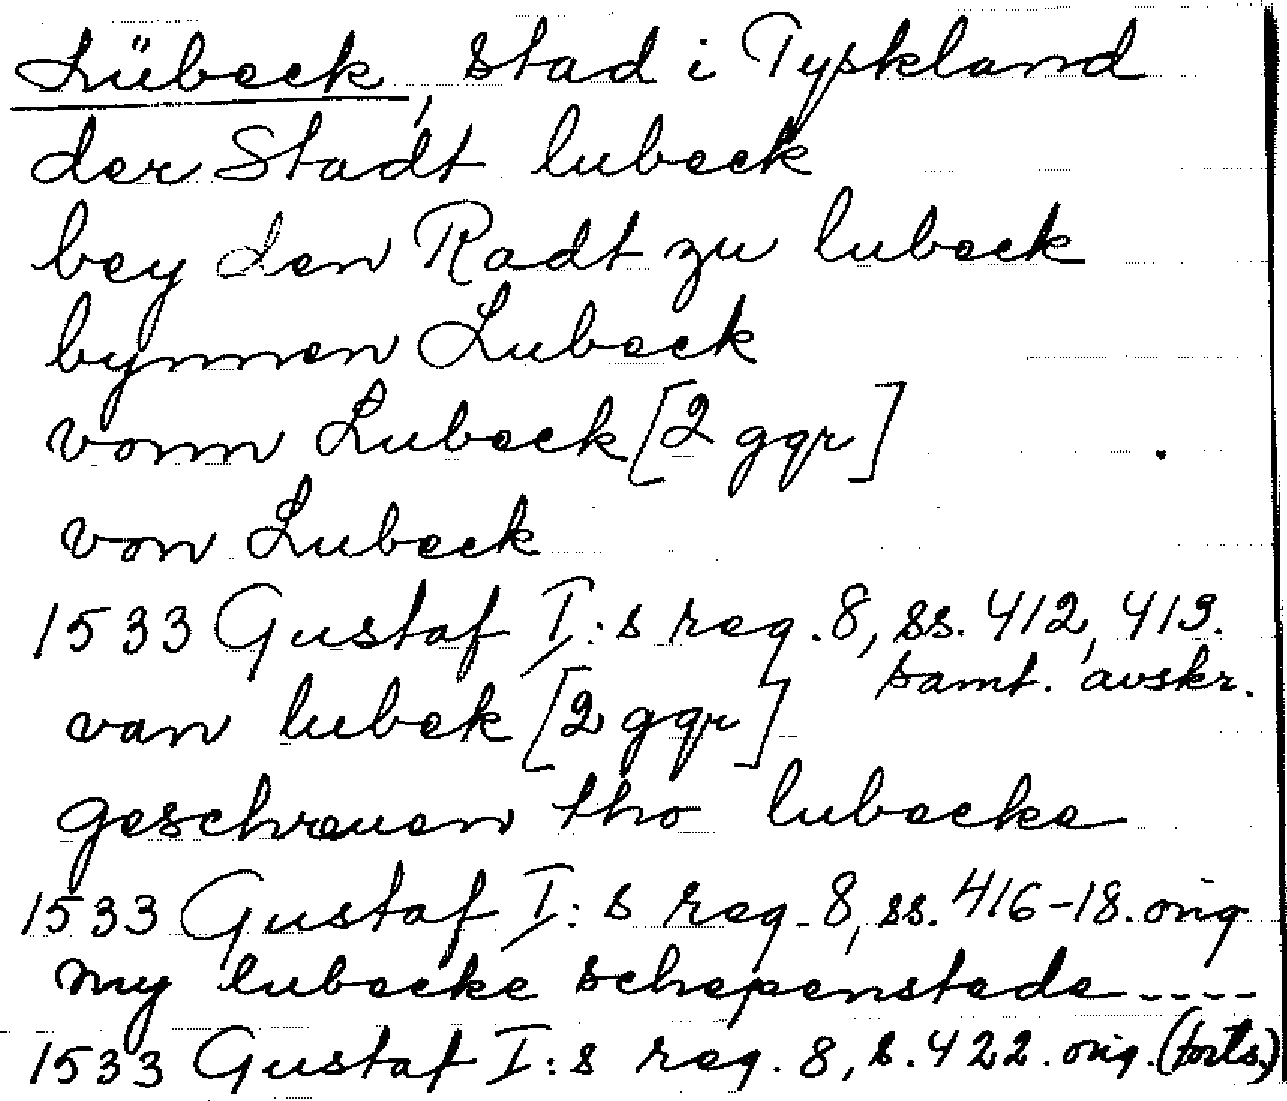 Lübeck, stad i Tyskland
der Stadt lubeck
bey den Radt zu lubeck
bynnen Lubeck
vonn Lubeck [2 ggr]
von Lubeck
1533 Gustaf I:s reg. 8, ss. 412, 413.
samt. avskr.
van lubek [2 ggr]
geschreuen tho lubecke
1533 Gustaf I:s reg. 8, ss. 416-18. orig
my lubecke schepenstede ----
1533 Gustaf I:s reg. 8, s. 422. orig. (forts.)